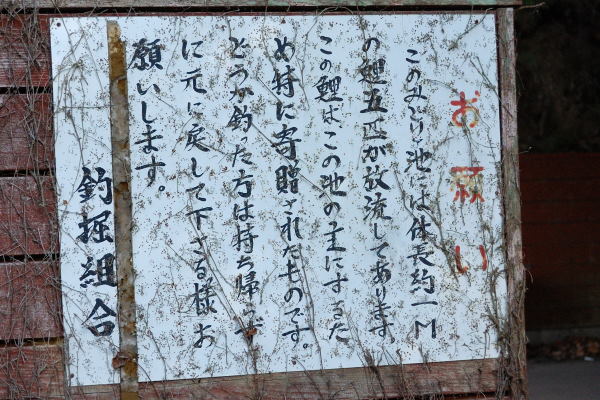 お願い
このみどり池には体長約一M
の鯉五匹が放流してあります
この鯉は、この池の主にするた
め特に寄贈されたものです。
どうか釣た方は持ち帰らず
に元に戻して下さる様お
願いします。
釣堀組合